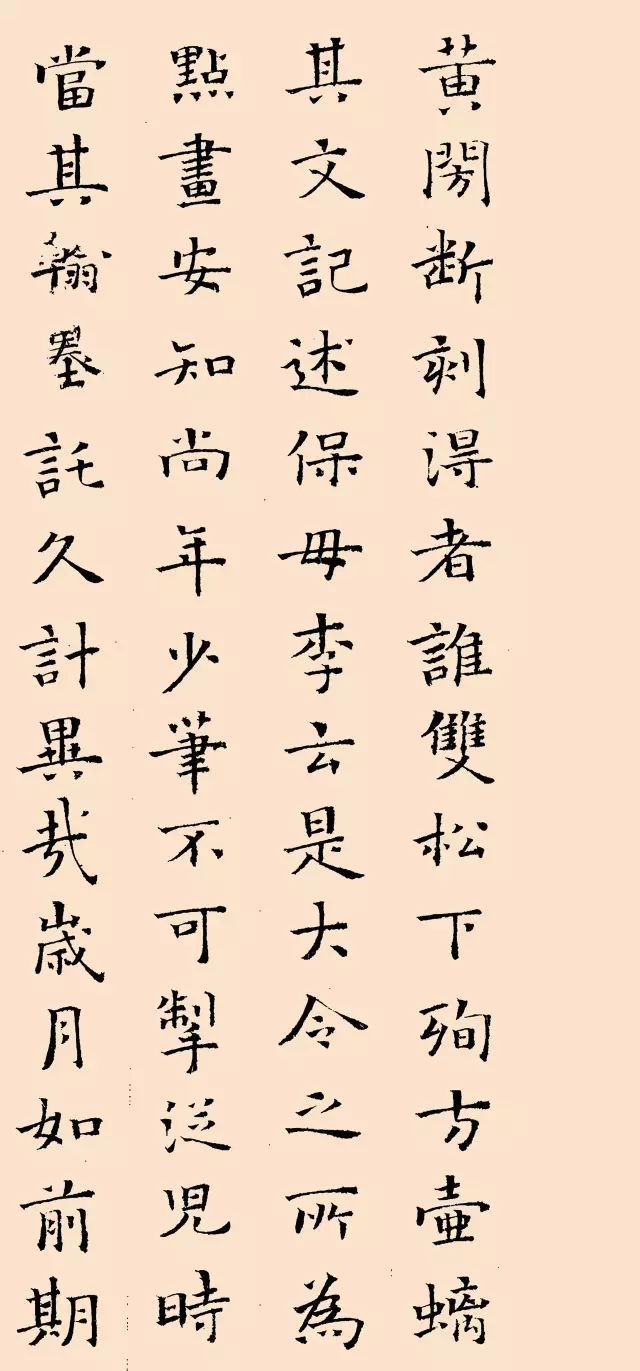 黄閍断刻得者誰雙松下殉方壷螭
其文記述保毋李云是大令之所為
點畫安知尚年少筆不可掣從児時
當其翰墨託久計異哉歳月如前期